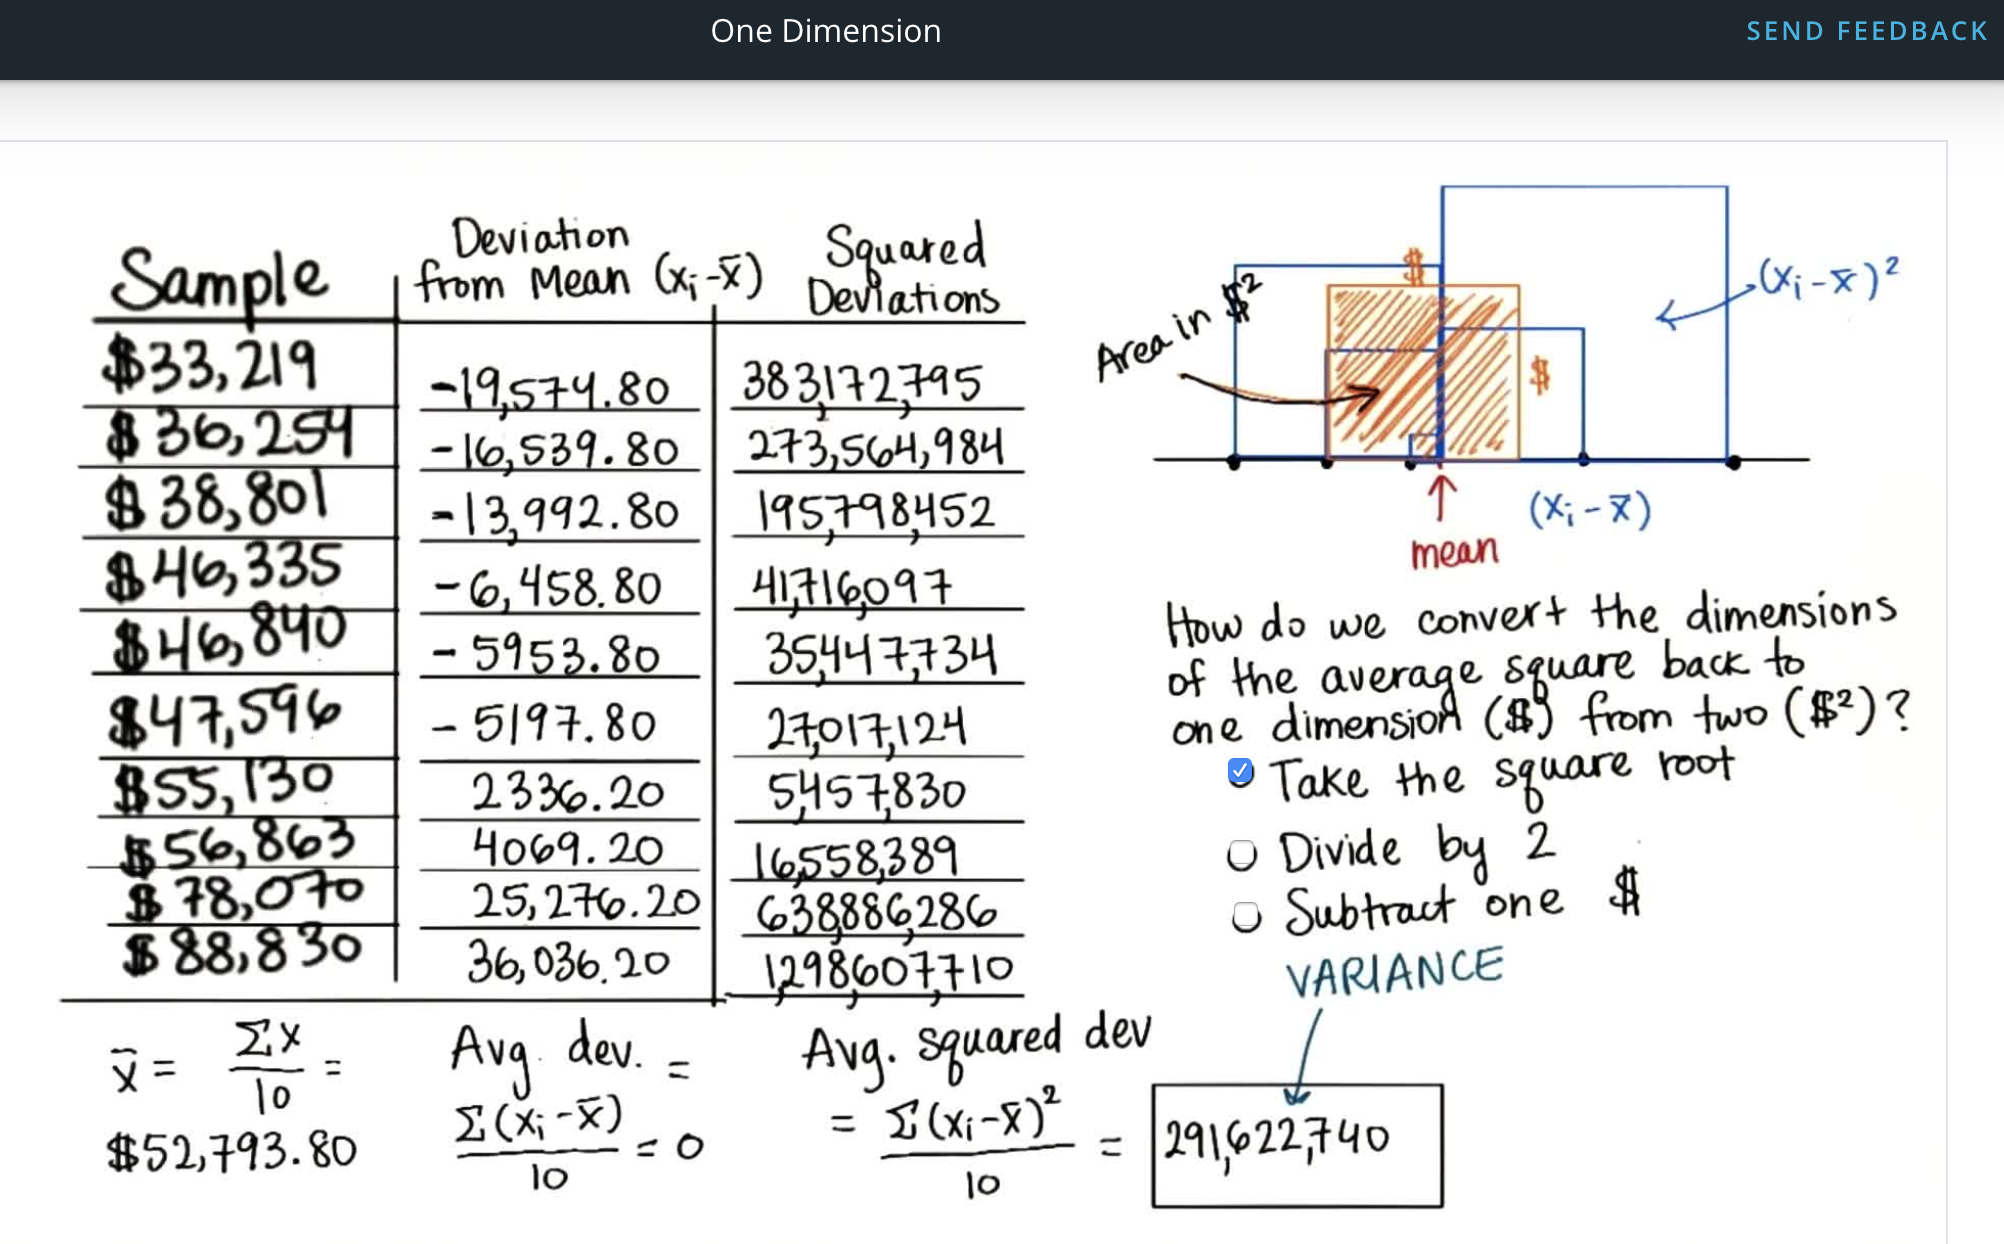 One Dimension
SEND FEEDBACK
Sample | Deviation from Mean (xᵢ-x̄) | Squared Deviations
$33,219 | -19,574.80 | 383,172,795
$36,254 | -16,539.80 | 273,564,984
$38,801 | -13,992.80 | 195,798,452
$46,335 | -6,458.80 | 41,716,097
$46,840 | -5953.80 | 35,447,734
$47,596 | -5197.80 | 27,017,124
$55,130 | 2336.20 | 5,457,830
$56,863 | 4069.20 | 16,558,389
$78,070 | 25,276.20 | 638,886,286
$88,830 | 36,036.20 | 1,298,607,710
x̄ = Σx/10 =
$52,793.80
Avg. dev. =
Σ(xᵢ-x̄)/10 = 0
Avg. squared dev
= Σ(xᵢ-x̄)²/10 = 291,622,740
Area in $²
$
$
(xᵢ-x̄)²
(xᵢ-x̄)
mean
How do we convert the dimensions
of the average square back to
one dimension ($) from two ($²)?
Take the square root
Divide by 2
Subtract one $
VARIANCE